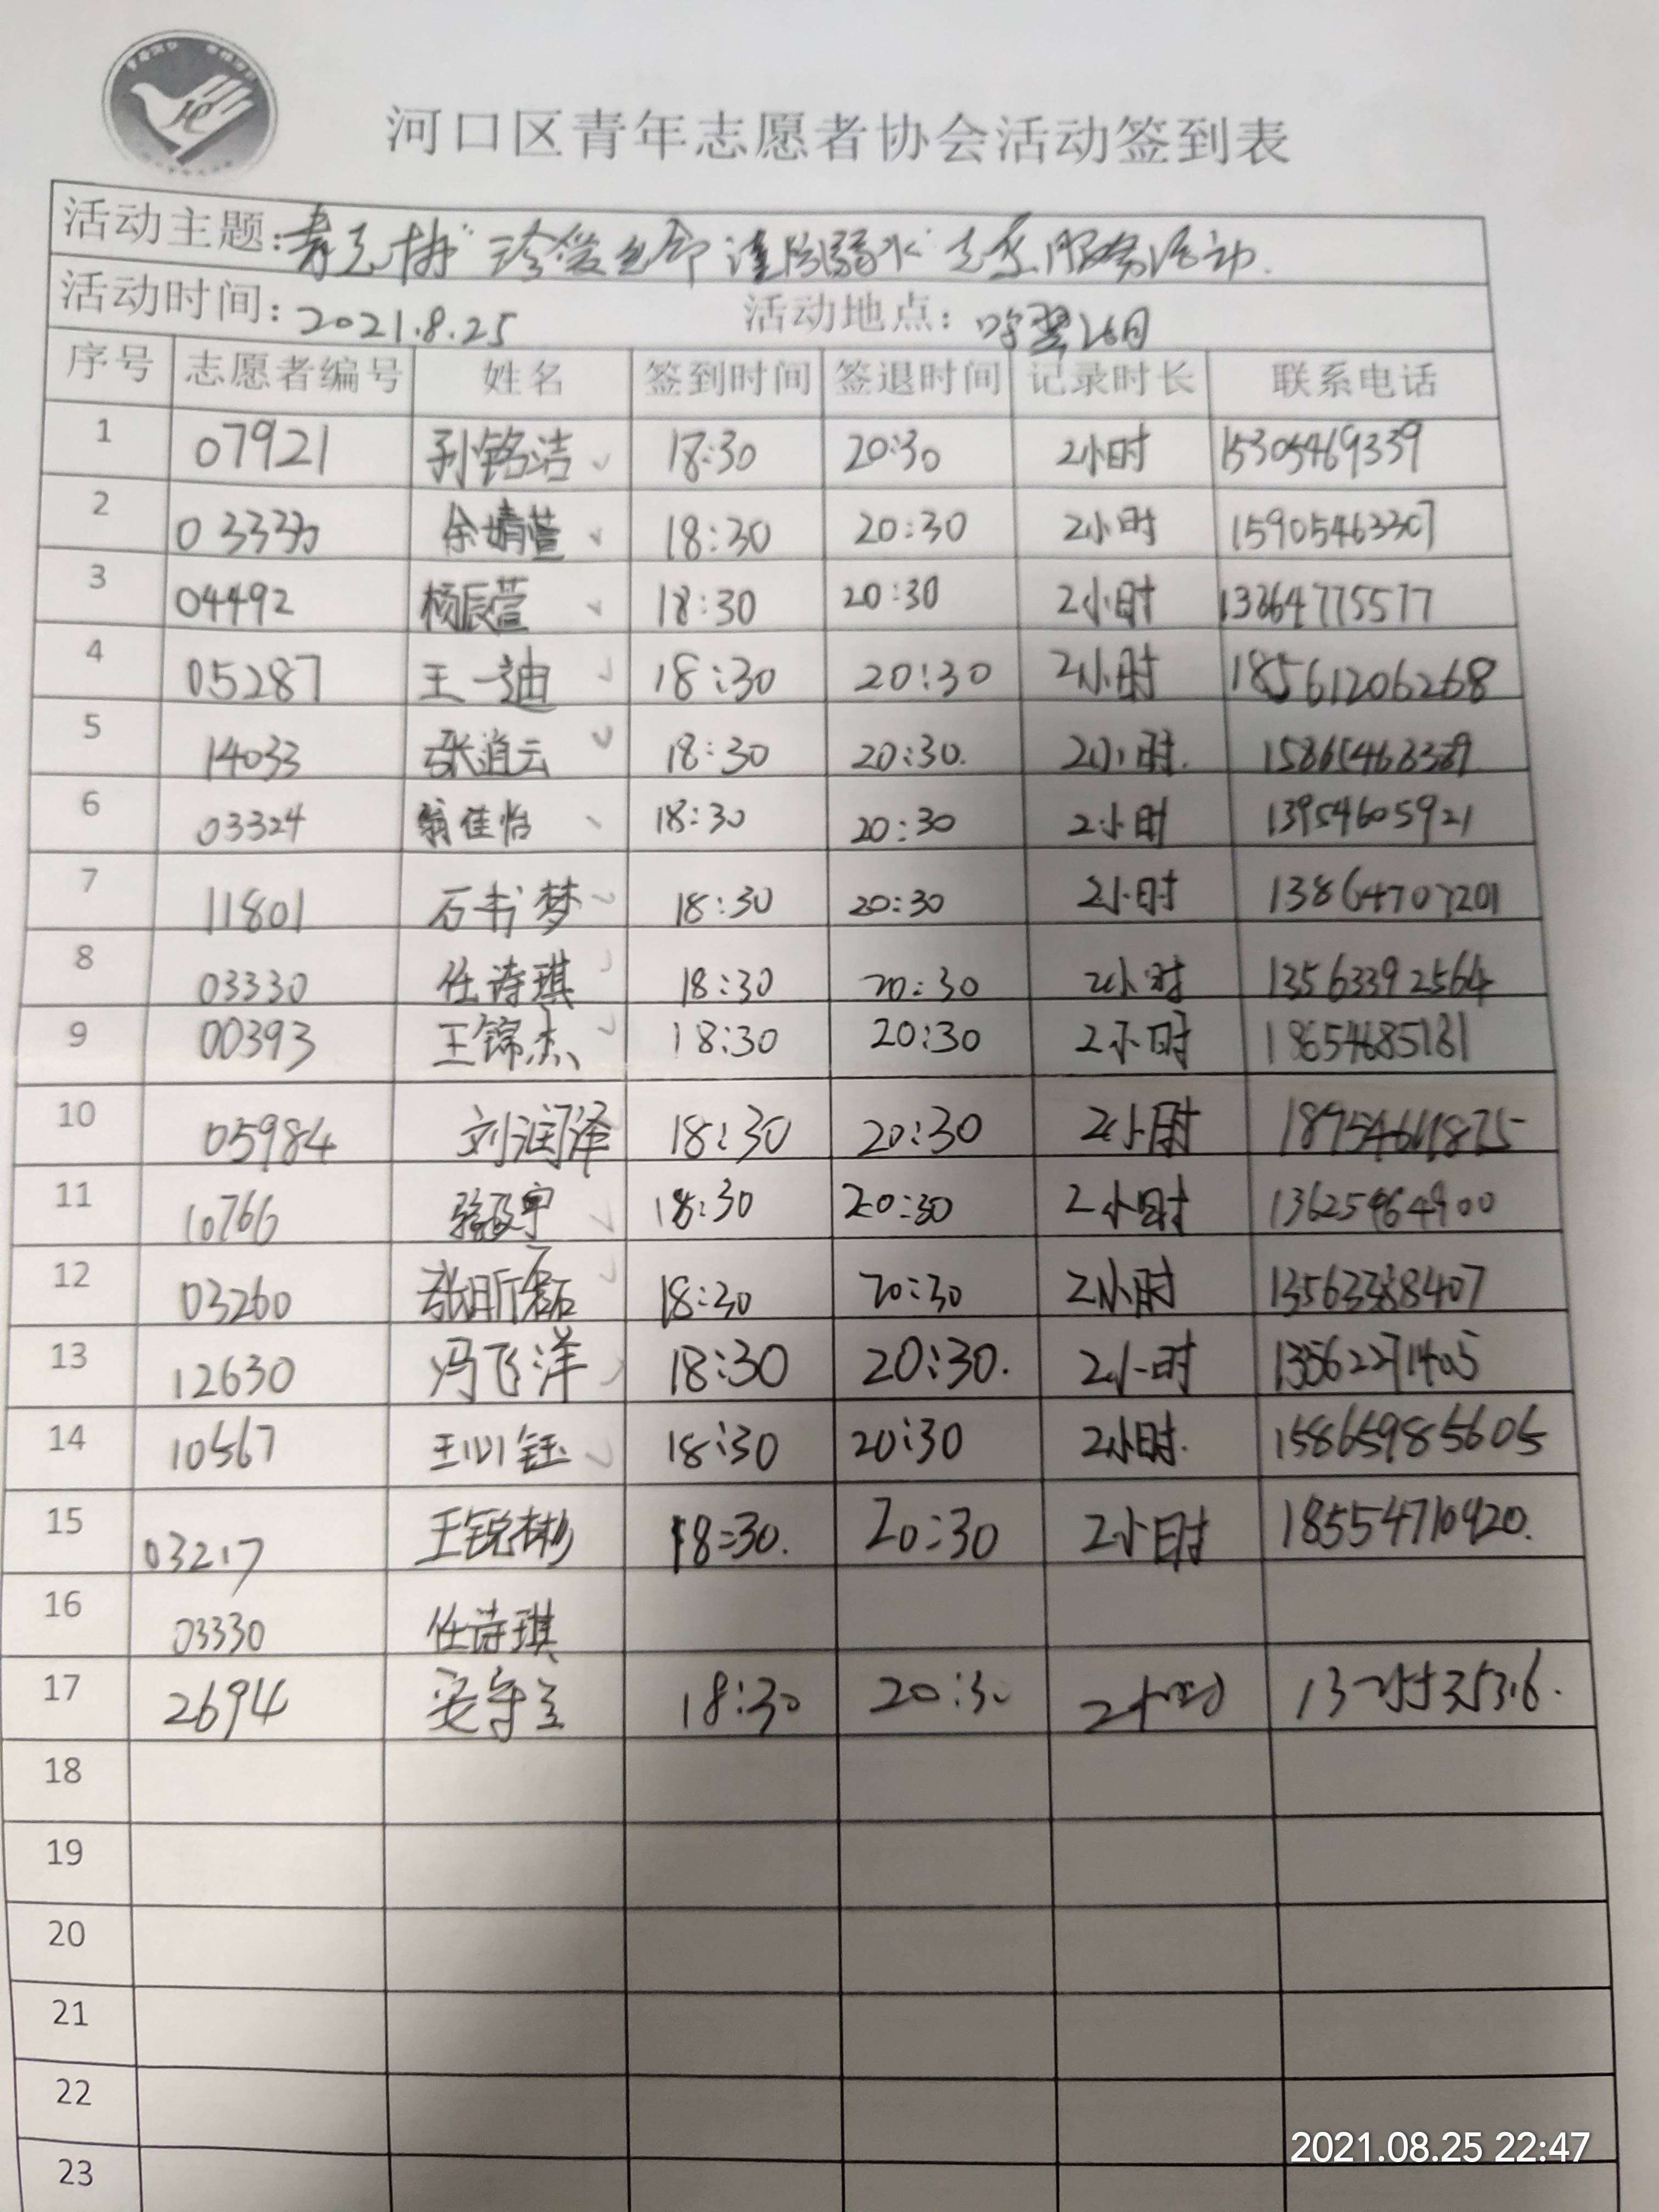 河口区青年志愿者协会活动签到表
活动主题: 珍爱生命 谨防溺水 志愿服务活动.
活动时间: 2021.8.25 活动地点:
序号 志愿者编号 姓名 签到时间 签退时间 记录时长 联系电话
1 07921 孙铭洁 18:30 20:30 2小时 15305469339
2 03333 余婧萱 18:30 20:30 2小时 15905463307
3 04492 杨辰萱 18:30 20:30 2小时 13864775577
4 05287 王一迪 18:30 20:30 2小时 18561206268
5 14033 张道云 18:30 20:30. 2小时.
6 03324 翁佳怡 18:30 20:30 2小时 13954605921
7 11801 石书梦 18:30 20:30 2小时 13864707201
8 03330 任诗琪 18:30 20:30 2小时 13563392564
9 00393 王锦杰 18:30 20:30 2小时 18654685181
10 05984 刘润泽 18:30 20:30 2小时
11 10766 18:30 20:30 2小时
12 03260 18:30 20:30 2小时 13563388407
13 12630 冯飞洋 18:30 20:30. 2小时 13562271405
14 10567 王心钰 18:30 20:30 2小时. 15865985605
15 03217 王锐彬 18:30. 20:30 2小时 18554710920.
16 03330 任诗琪
17 2694 18:30 20:30 2小时
18
19
20
21
22
23
2021.08.25 22:47